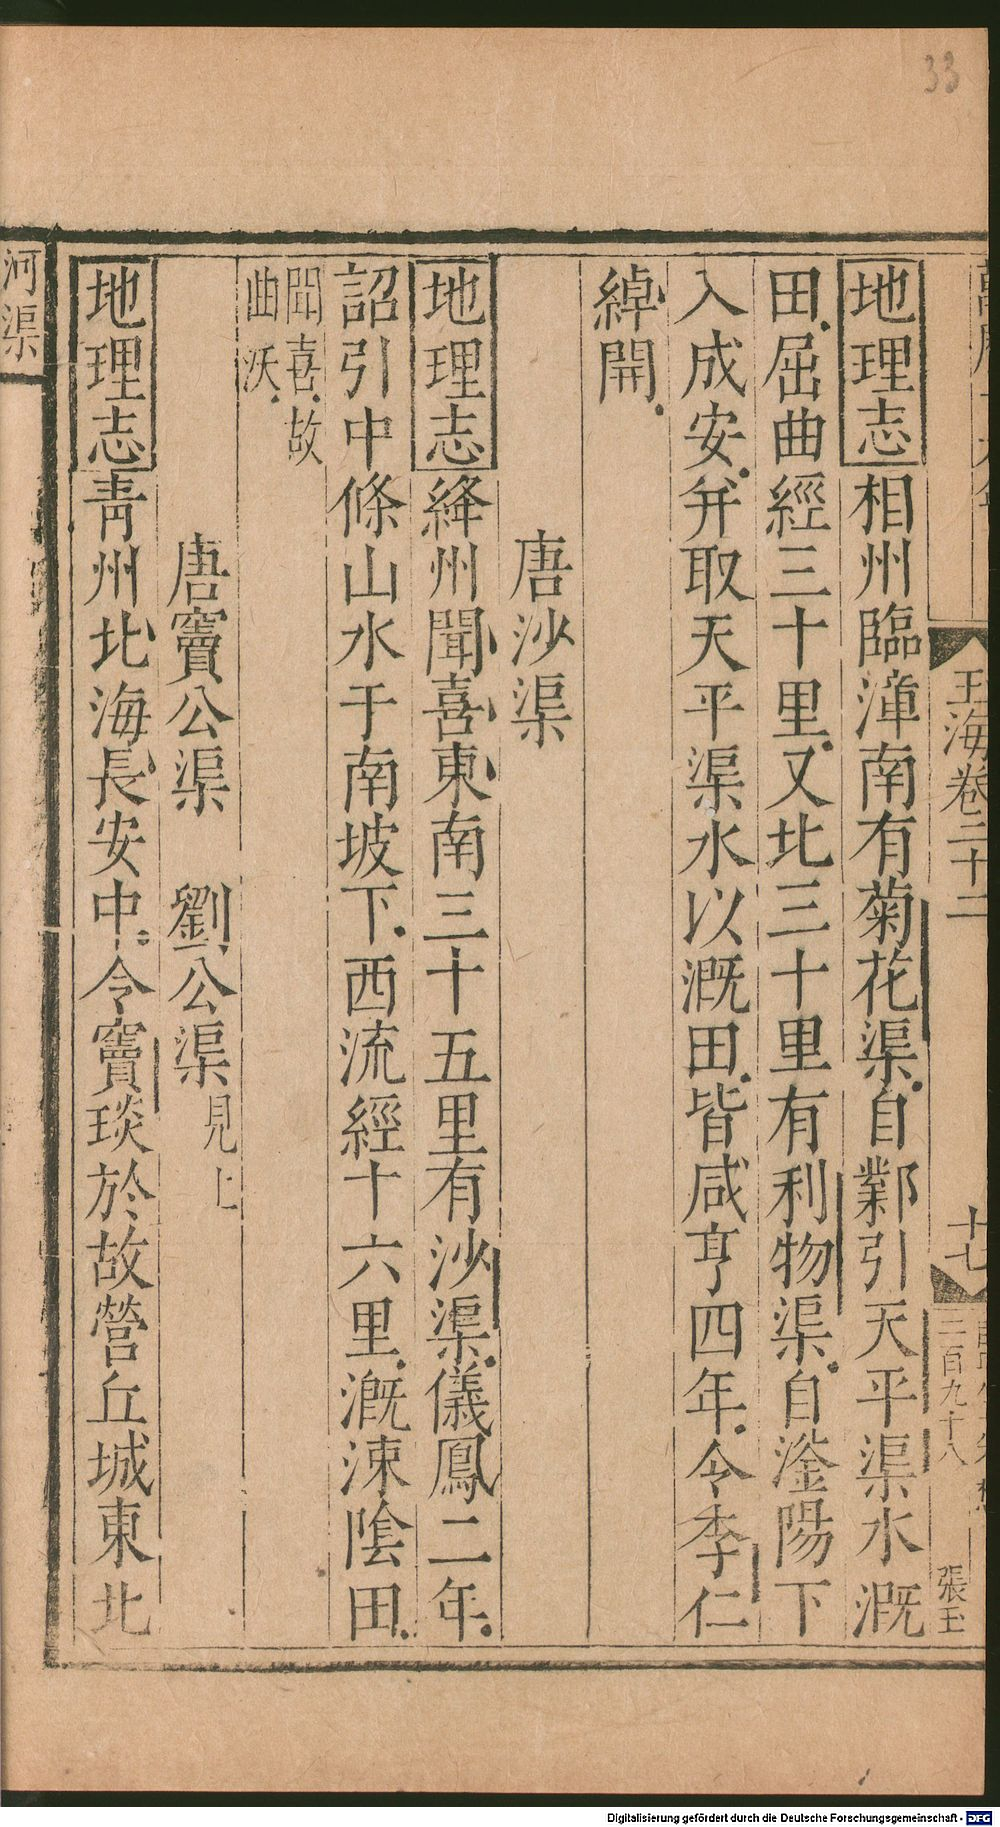 33
玉海卷二十二
十七
二百九十八
張玉
地理志相州臨漳南有菊花渠自鄴引天平渠水溉
田屈曲經三十里又北三十里有利物渠自滏陽下
入成安并取天平渠水以溉田皆咸亨四年令李仁
綽開
唐沙渠
地理志絳州聞喜東南三十五里有沙渠儀鳳二年
詔引中條山水于南坡下西流經十六里溉涑陰田
聞喜故
曲沃
唐竇公渠 劉公渠見上
地理志青州北海長安中令竇琰於故營丘城東北
河渠
Digitalisierung gefördert durch die Deutsche Forschungsgemeinschaft - DFG